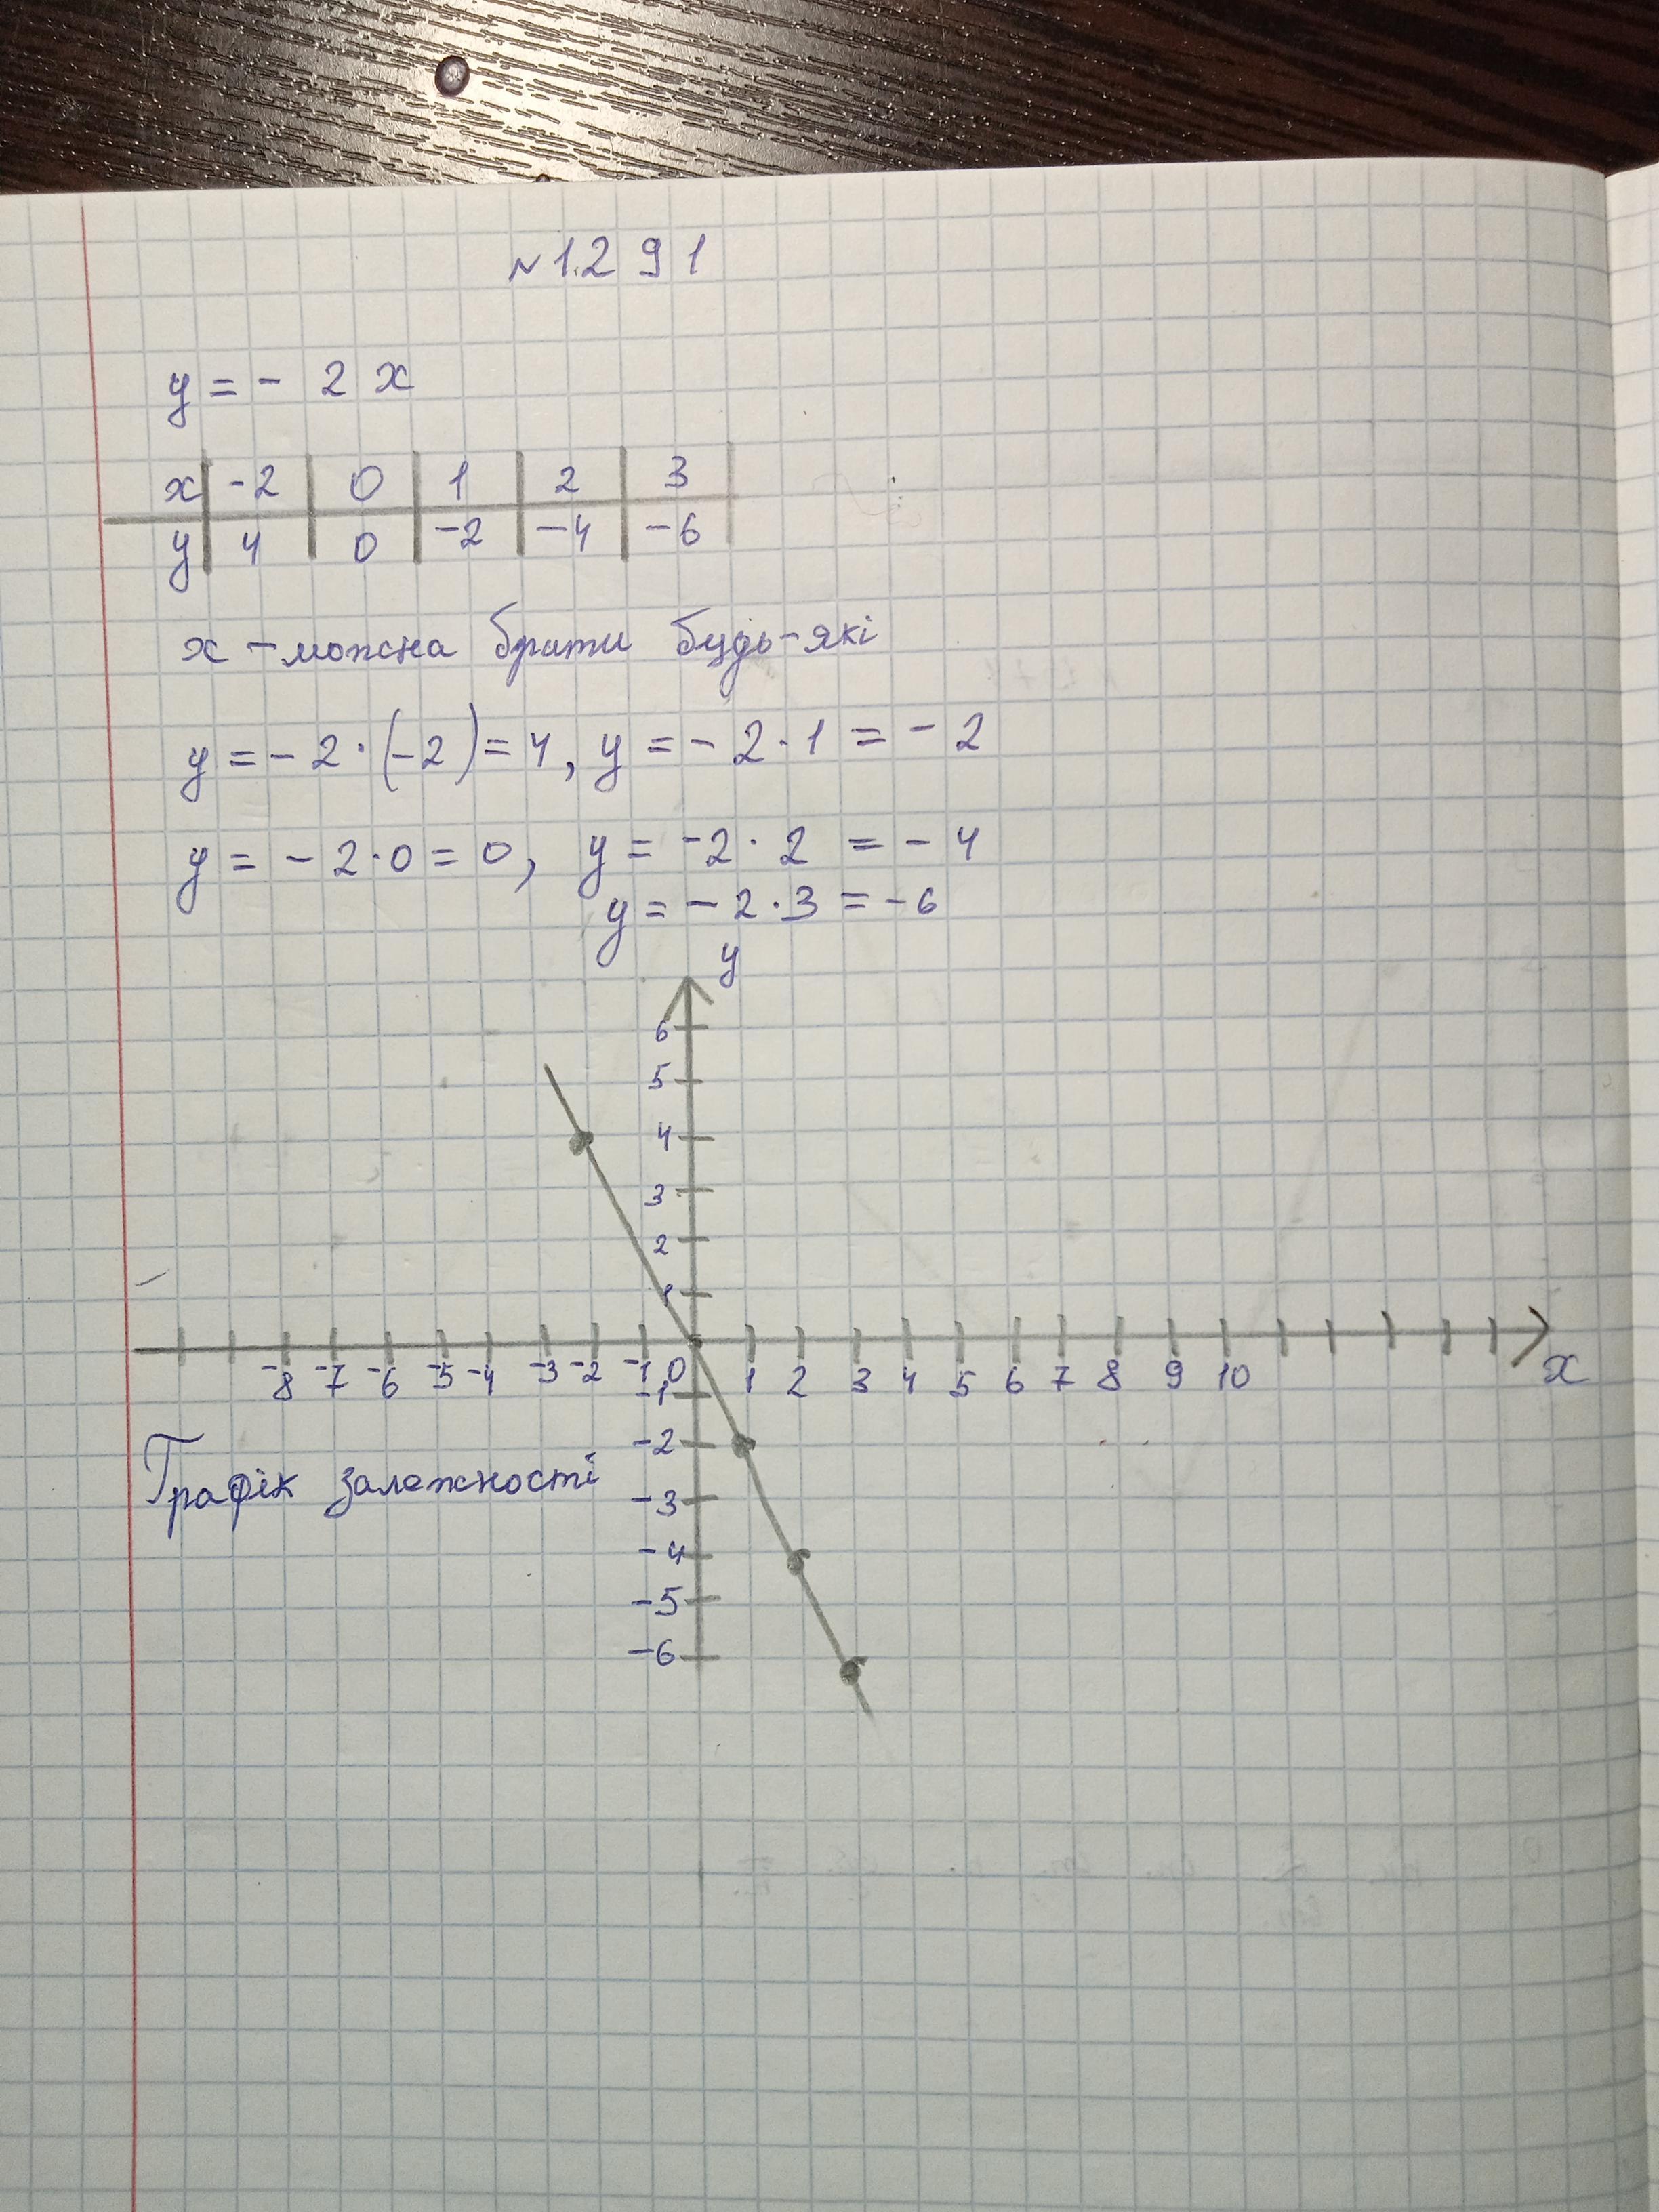 №1.291
y = - 2 x
x | -2 | 0 | 1 | 2 | 3
y | 4 | 0 | -2 | -4 | -6
x - можна брати будь-які
y = - 2 · (-2) = 4, y = - 2 · 1 = - 2
y = - 2 · 0 = 0, y = -2 · 2 = - 4
y = - 2 · 3 = -6
y
6
5
4
3
2
1
-8 -7 -6 -5 -4 -3 -2 -1 0 1 2 3 4 5 6 7 8 9 10 x
-1
-2
Графік залежності
-3
-4
-5
-6